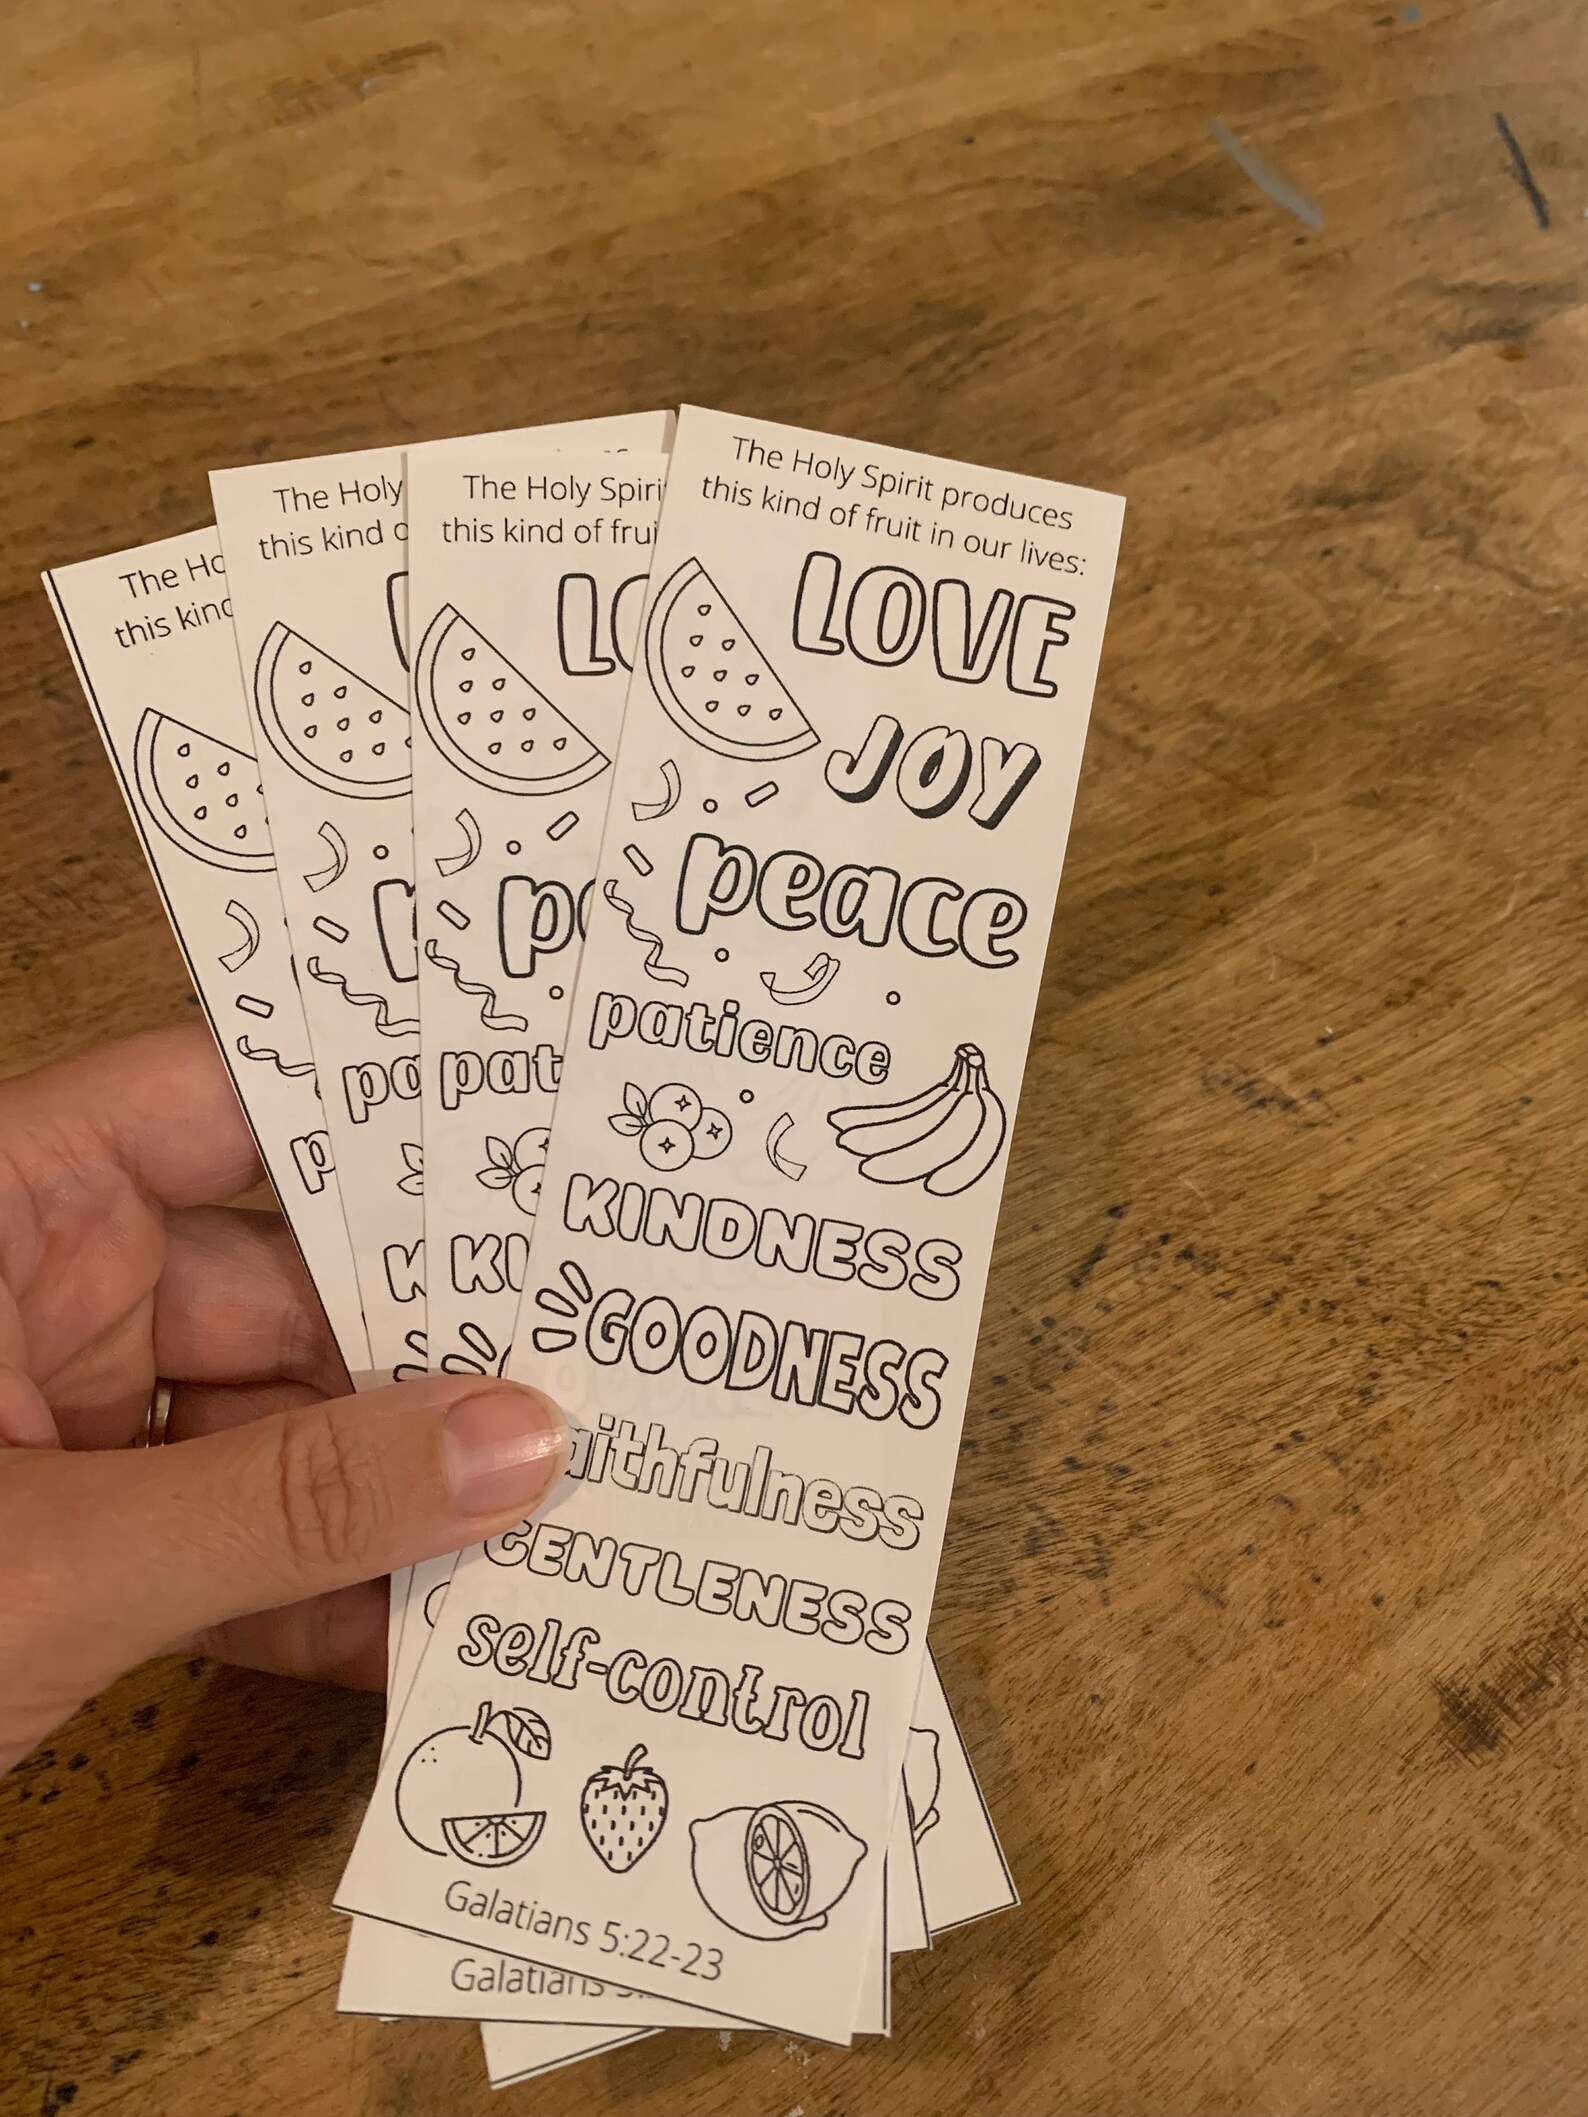 The Holy Spirit produces
this kind of fruit in our lives:
LOVE
JOY
peace
patience
KINDNESS
GOODNESS
aithfulness
GENTLENESS
self-control
Galatians 5:22-23
The Holy Spiri
this kind of frui
LO
pe
pat
KI
Galatians 5:
The Holy
this kind o
L
p
pa
K
The Ho
this kind
p